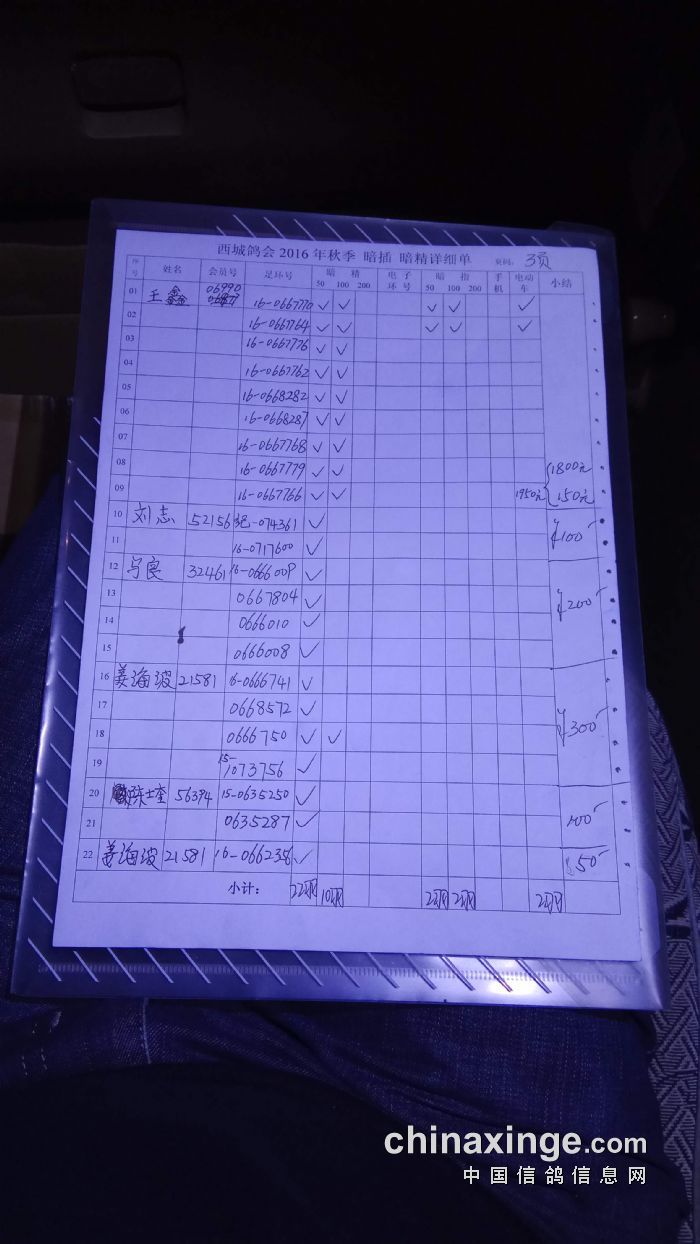 西城鸽会 2016 年秋季 暗插 暗精详细单 页码: 3页
序号 姓名 会员号 足环号 暗 精 电子环号 暗 指 手机 电动车 小结
50 100 200 50 100 200
01 王鑫 06990 16-0667770 ✓ ✓ ✓ ✓ ✓
02 16-0667764 ✓ ✓ ✓
03 16-0667776 ✓ ✓
04 16-0667762 ✓ ✓
05 16-0668282 ✓ ✓
06 16-0668287 ✓ ✓
07 16-0667768 ✓ ✓
08 16-0667779 ✓ ✓ 1800元
09 16-0667766 ✓ ✓ 1950元 150元
10 刘志 52156 -074361 ✓
11 16-0717600 ✓ ¥100
12 马良 32461 16-0666009 ✓
13 0667804 ✓ ¥200
14 0666010 ✓
15 0666008 ✓
16 姜海波 21581 16-0666741 ✓
17 0668572 ✓
18 0666750 ✓ ✓ ¥300
19 15-1073756 ✓
20 陈士奎 56394 15-0635250 ✓
21 0635287 ✓ 100
22 姜海波 21581 16-066235 ✓ 50
小计: 22羽 10羽 2羽 2羽 2羽
chinaxinge.com
中国信鸽信息网